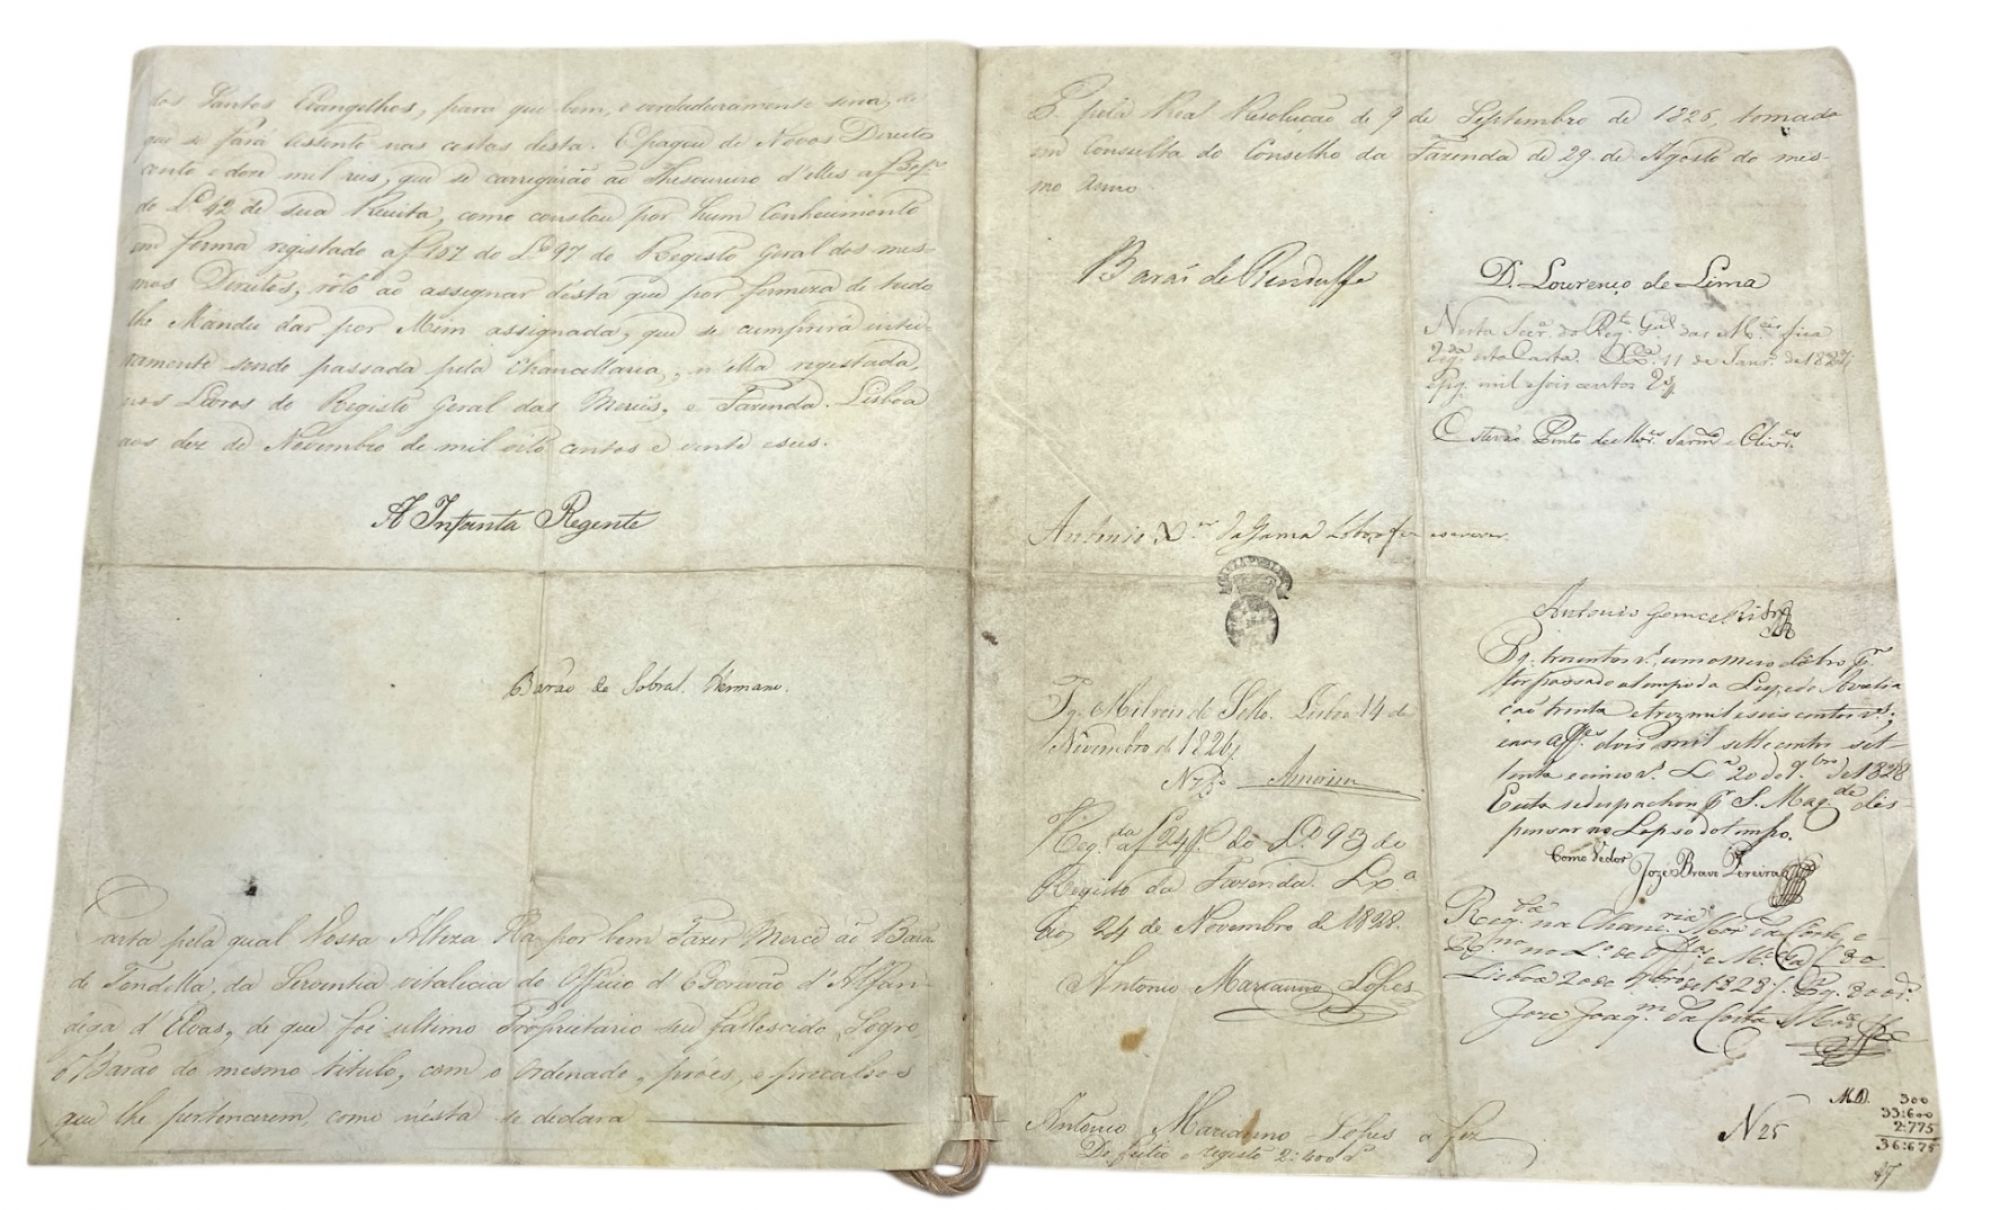 dos Santos Evangelhos, para que bem, e verdadeiramente sirva, de
que se fará assento nas costas desta. E pagou de Novos Direitos
cento e doze mil reis, que se carregarão ao Thesoureiro d'elles a f
do L.º 42 de sua Receita, como constou por hum Conhecimento
em forma registado a f 157 do L.º 97 do Registo Geral dos mes-
mos Direitos, rôto ao assignar désta que por firmeza de tudo
lhe Mandei dar por Mim assignada, que se cumprirá intei-
ramente sendo passada pela Chancellaria, n'ella registada,
nos Livros do Registo Geral das Mercês, e Fazenda. Lisboa
aos dez de Novembro de mil oito centos e vinte e seis.
A Infanta Regente
Barão de Sobral. Hermano.
Carta pela qual Vossa Alteza Ha por bem Fazer Mercê ao Barão
de Tondella, da Serventia vitalicia do Officio d'Escrivão d'Alfan-
dega d'Elvas, de que foi ultimo Proprietario seu fallescido Sogro,
o Barão do mesmo titulo, com o Ordenado, próes, e precalsos
que lhe pertencerem, como nésta se declara
P. pela Real Resolução de 9 de Septembro de 1826, tomada
em Consulta do Conselho da Fazenda de 29 de Agosto do mes-
mo Anno.
Barão de Renduffe
D. Lourenço de Lima
Nesta Secr.ª do Reg.to G.al das M.cês fica
reg.da esta Carta. Lx.ª 11 de Janr.º de 1827
e pg. mil e seis centos rs
Estevão Pinto de Mor.es Sarm.to e Oliv.ra
Antonio X.er da Gama Lobo a fez escrever.
Antonio Gomes Ribr.º
Pg. trezentos r.s e
por passado o tempo da Ley, e do Avalia
ção trinta e trez mil e seis centos r.s;
e aos Off.es dois mil sette centos set-
tenta e cinco r.s L.ª 20 de 9.bro de 1828
Esta se despachou p. S. Mag.de dis-
pensar no Lapso do tempo.
Como Vedor
Joze Bravo Pereira
Pg. Mil reis de Sello. Lisboa 14 de
Novembro de 1826
Amorim
Reg.da a f 24 do L.º 93 do
Registo da Fazenda. Lx.ª
24 de Novembro de 1828.
Antonio Marianno Lopes
Reg.da na Chanc.ria Mór da Corte, e
R.no no L.º de Off.os e M.cês a f 80
Lisboa 20 de 9bro de 1828. Pg. 800 r.s
Joze Joaq.m da Costa
Antonio Marianno Lopes a fez
De feitio e registo 2:400 r
N 25
M.D. 300
33:600
2:775
36:675